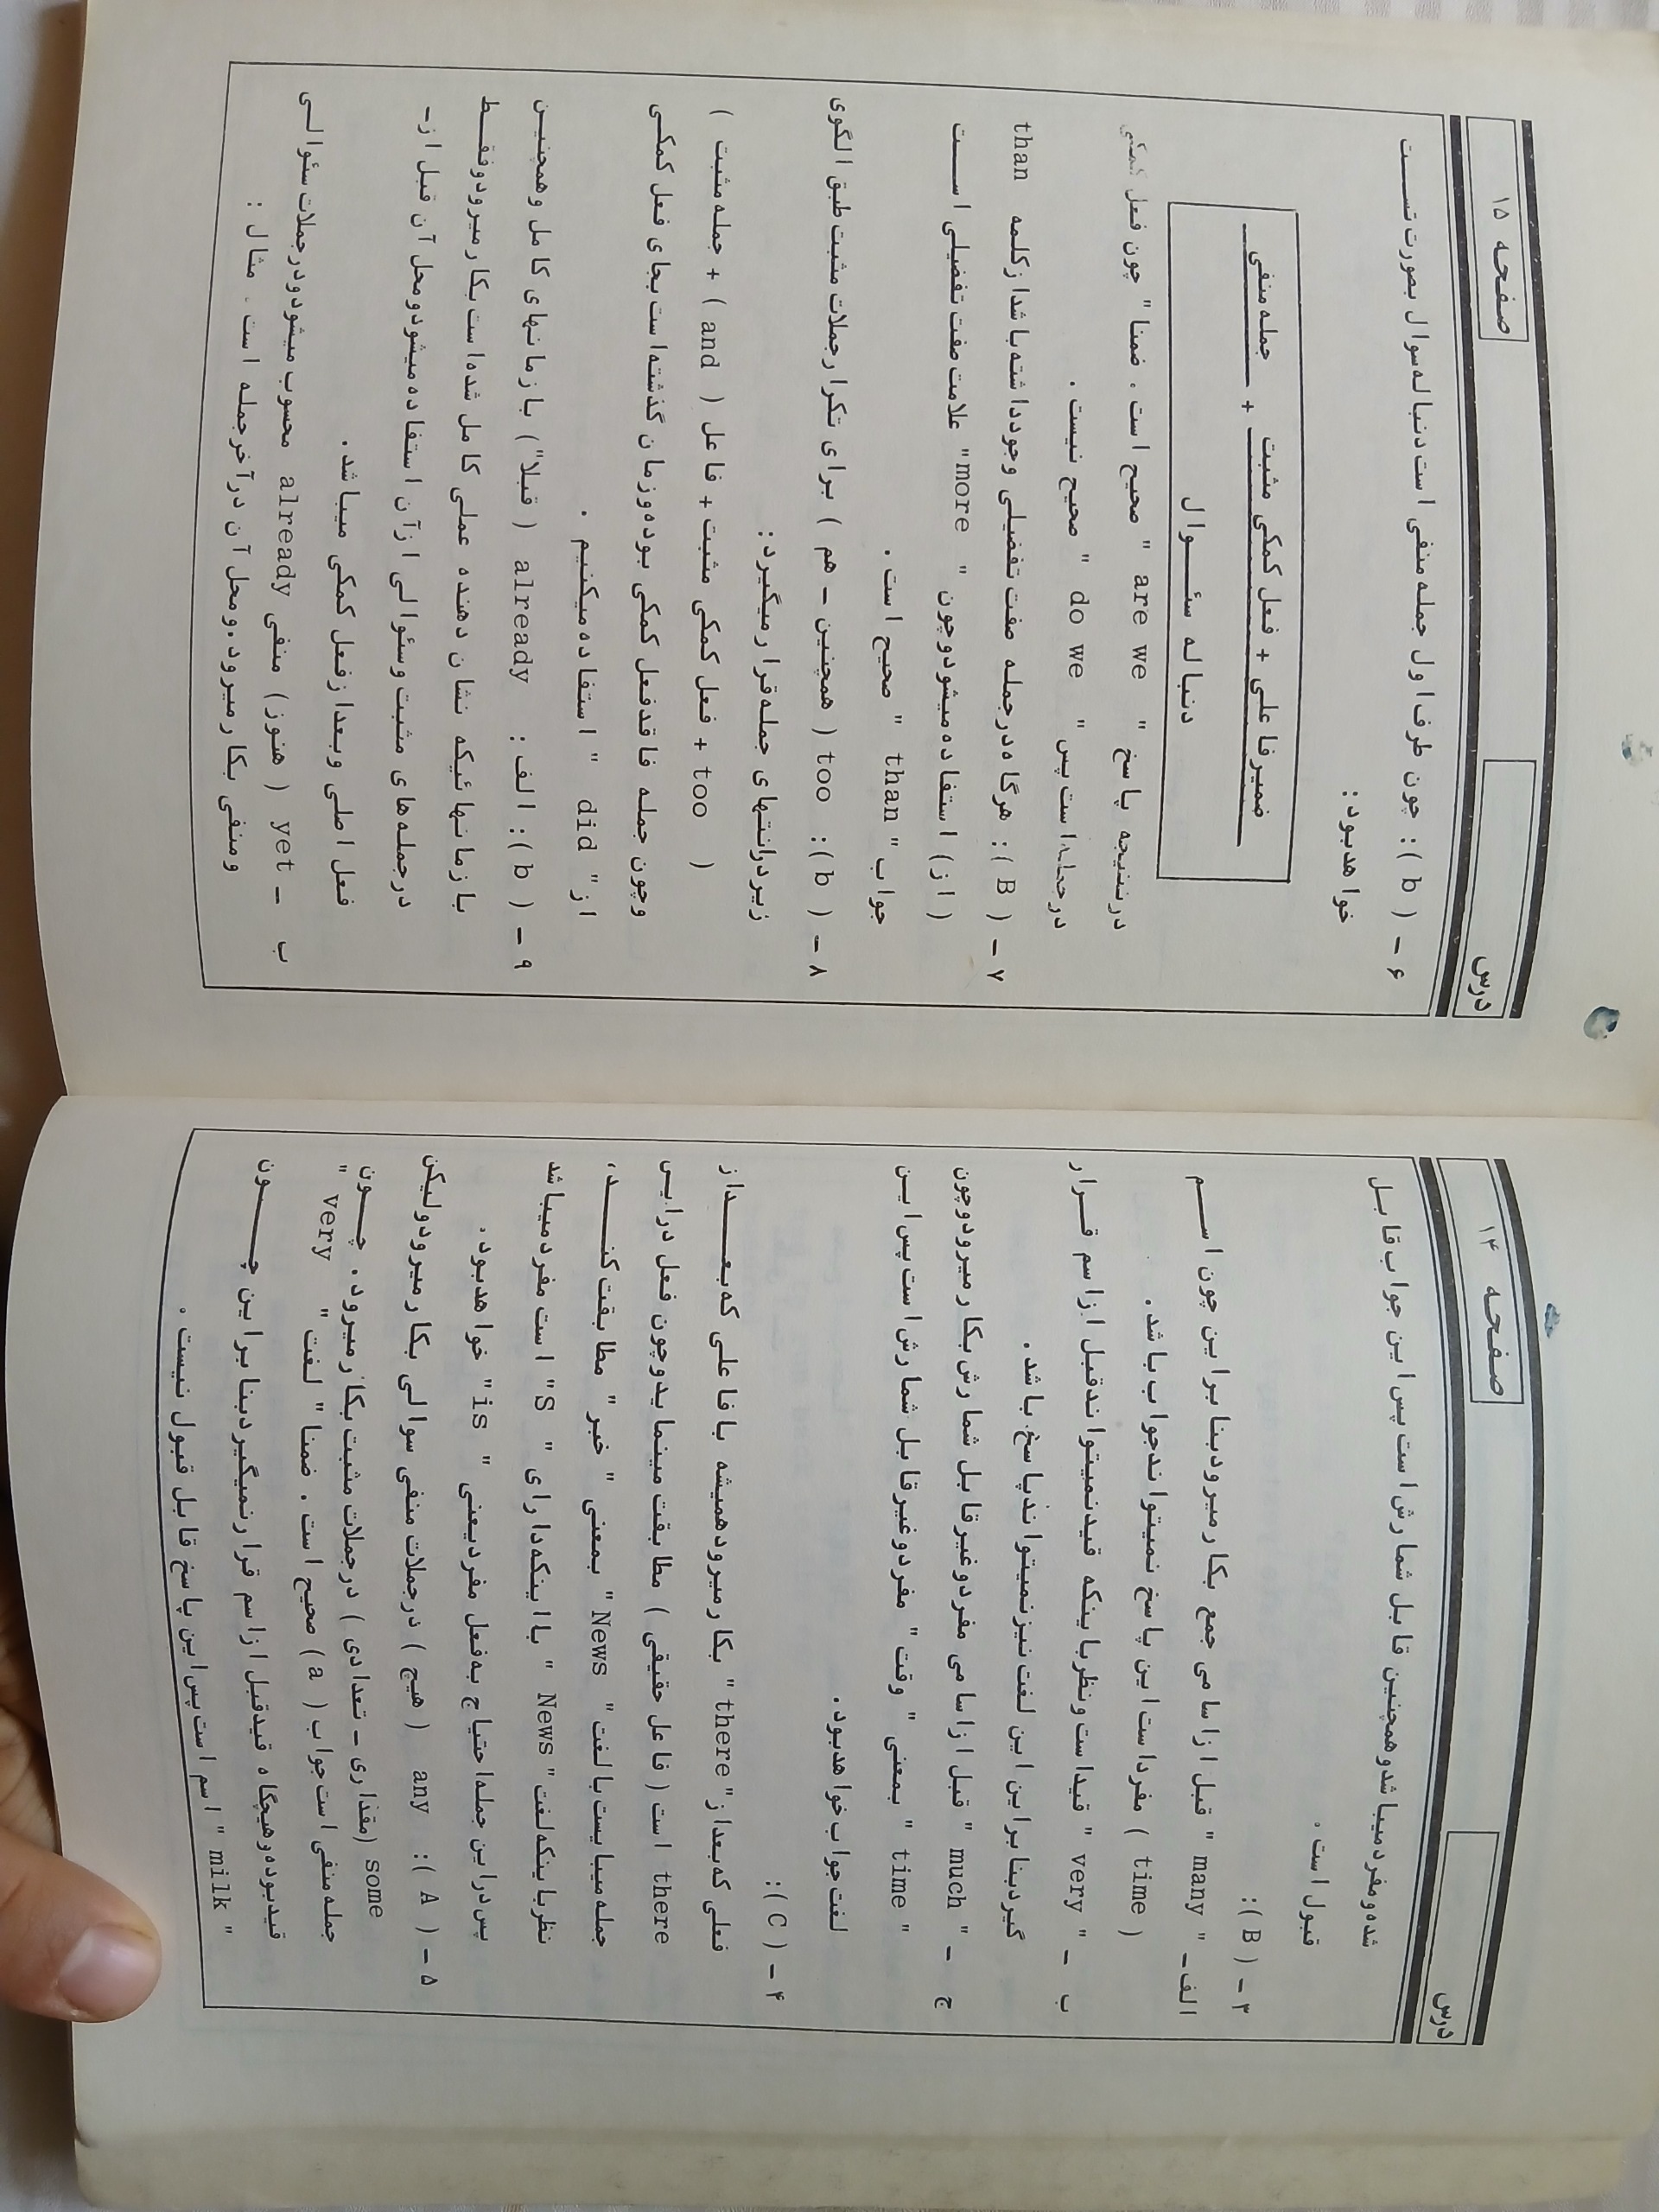 صفحه ۱۴
درس
شده و مفرد میباشد و همچنین قابل شمارش است پس این جواب قابل
قبول است .
۳ - ( B ):
الف - " many " قبل از اسامی جمع بکار میرود بنابراین چون اسم
( time ) مفرد است این پاسخ نمیتواند جواب باشد .
ب - " very " قید است و نظر باینکه قید نمیتواند قبل از اسم قرار
گیرد بنابراین این لغت نیز نمیتواند پاسخ باشد .
ج - " much " قبل از اسامی مفرد و غیر قابل شمارش بکار میرود و چون
" time " بمعنی " وقت " مفرد و غیر قابل شمارش است پس این
لغت جواب خواهد بود .
۴ - ( C ):
فعلی که بعد از " there " بکار میرود همیشه با فاعلی که بعد از
there است ( فاعل حقیقی ) مطابقت مینماید و چون فعل در این
جمله میبایست با لغت " News " بمعنی " خبر " مطابقت کند ،
نظر باینکه لغت " News " با اینکه دارای " S " است مفرد میباشد
پس در این جمله احتیاج به فعل مفرد یعنی " is " خواهد بود .
۵ - ( A ): any ( هیچ ) در جملات منفی سوالی بکار میرود ولیکن
some ( مقداری - تعدادی ) در جملات مثبت بکار میرود . چون
جمله منفی است جواب ( a ) صحیح است . ضمنا " لغت " very "
قید بوده و هیچگاه قید قبل از اسم قرار نمیگیرد بنابراین چون
" milk " اسم است پس این پاسخ قابل قبول نیست .
صفحه ۱۵
درس
۶ - ( b ): چون طرف اول جمله منفی است دنباله سوال بصورت تست
خواهد بود :
ضمیر فاعلی + فعل کمکی مثبت + جمله منفی
دنباله سئوال
در نتیجه پاسخ " are we " صحیح است . ضمنا " چون فعل کمکی
در جمله است پس " do we " صحیح نیست .
۷ - ( B ): هرگاه در جمله صفت تفضیلی وجود داشته باشد از کلمه than
( از ) استفاده میشود و چون " more " علامت صفت تفضیلی است
جواب " than " صحیح است .
۸ - ( b ): too ( همچنین - هم ) برای تکرار جملات مثبت طبق الگوی
زیر در انتهای جمله قرار میگیرد :
( too + فعل کمکی مثبت + فاعل ( and ) + جمله مثبت )
و چون جمله فاقد فعل کمکی بوده و زمان گذشته است بجای فعل کمکی
از " did " استفاده میکنیم .
۹ - ( b ): الف : already ( قبلا" ) با زمانهای کامل و همچنین
با زمانهائیکه نشان دهنده عملی کامل شده است بکار میرود و فقط
در جمله های مثبت و سئوالی از آن استفاده میشود و محل آن قبل از -
فعل اصلی و بعد از فعل کمکی میباشد .
ب - yet ( هنوز ) منفی already محسوب میشود و در جملات سئوالی
و منفی بکار میرود . و محل آن در آخر جمله است . مثال :